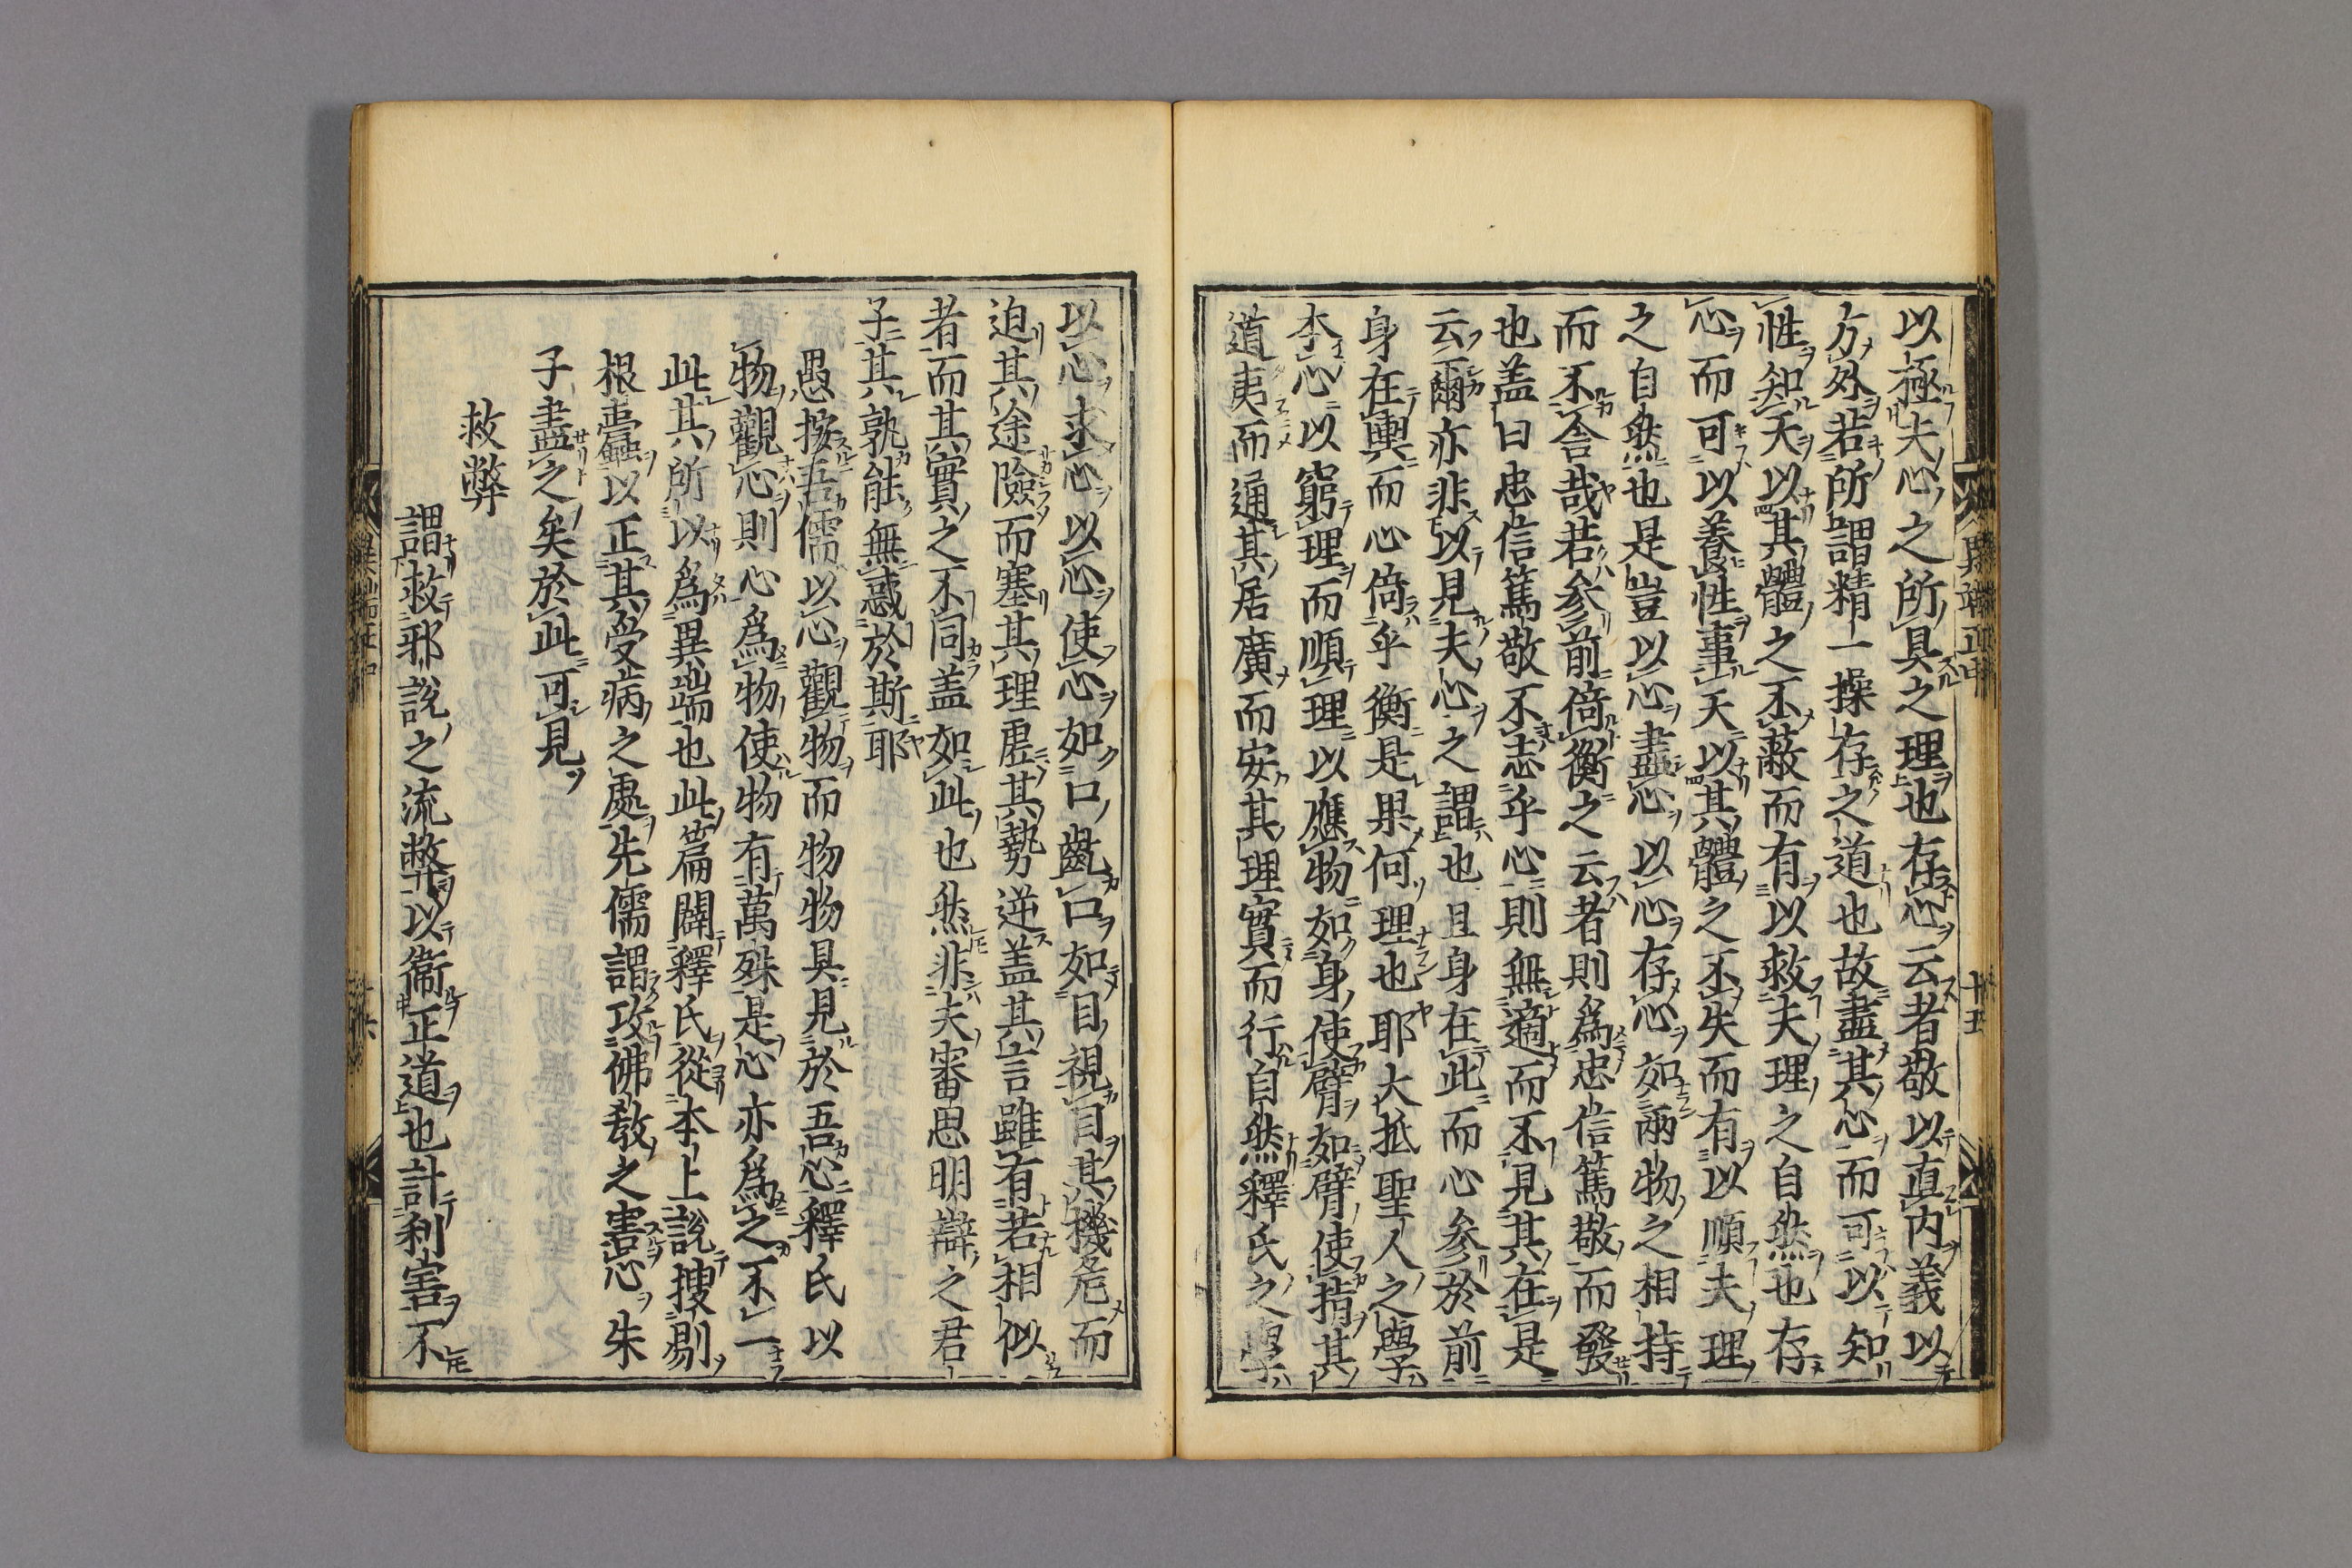 以極夫心之所具之理也存心云者敬以直内義以
方外若所謂精一操存之道也故盡其心而可以知
性知天以其體之不蔽而有以救夫理之自然也存
心而可以養性事天以其體之不失而有以順夫理
之自然也是豈以心盡心以心存心如兩物之相持
而不舎哉若参前倚衡之云者則為忠信篤敬而發
也盖曰忠信篤敬不忘乎心則無適而不見其在是
云爾亦非以見夫心之謂也且身在此而心参於前
身在輿而心倚乎衡是果何理也耶大抵聖人之學
本心以窮理而順理以應物如身使臂如臂使指其
道夷而通其居廣而安其理實而行自然釋氏之學
以心求心以心使心如口齕口如目視目其機危而
迫其途險而塞其理虚其勢逆盖其言雖有若相似
者而其實之不同盖如此也然非夫審思明辯之君
子其孰能無惑於斯耶
愚按吾儒以心觀物而物物具見於吾心釋氏以
物觀心則心為物使物有萬殊是心亦為之不一
此其所以為異端也此篇闢釋氏從本上說搜剔
根蠧以正其受病之處先儒謂攻佛教之害心朱
子盡之矣於此可見
救弊
謂救邪說之流弊以衞正道也計利害不
異端正中
十五
十六